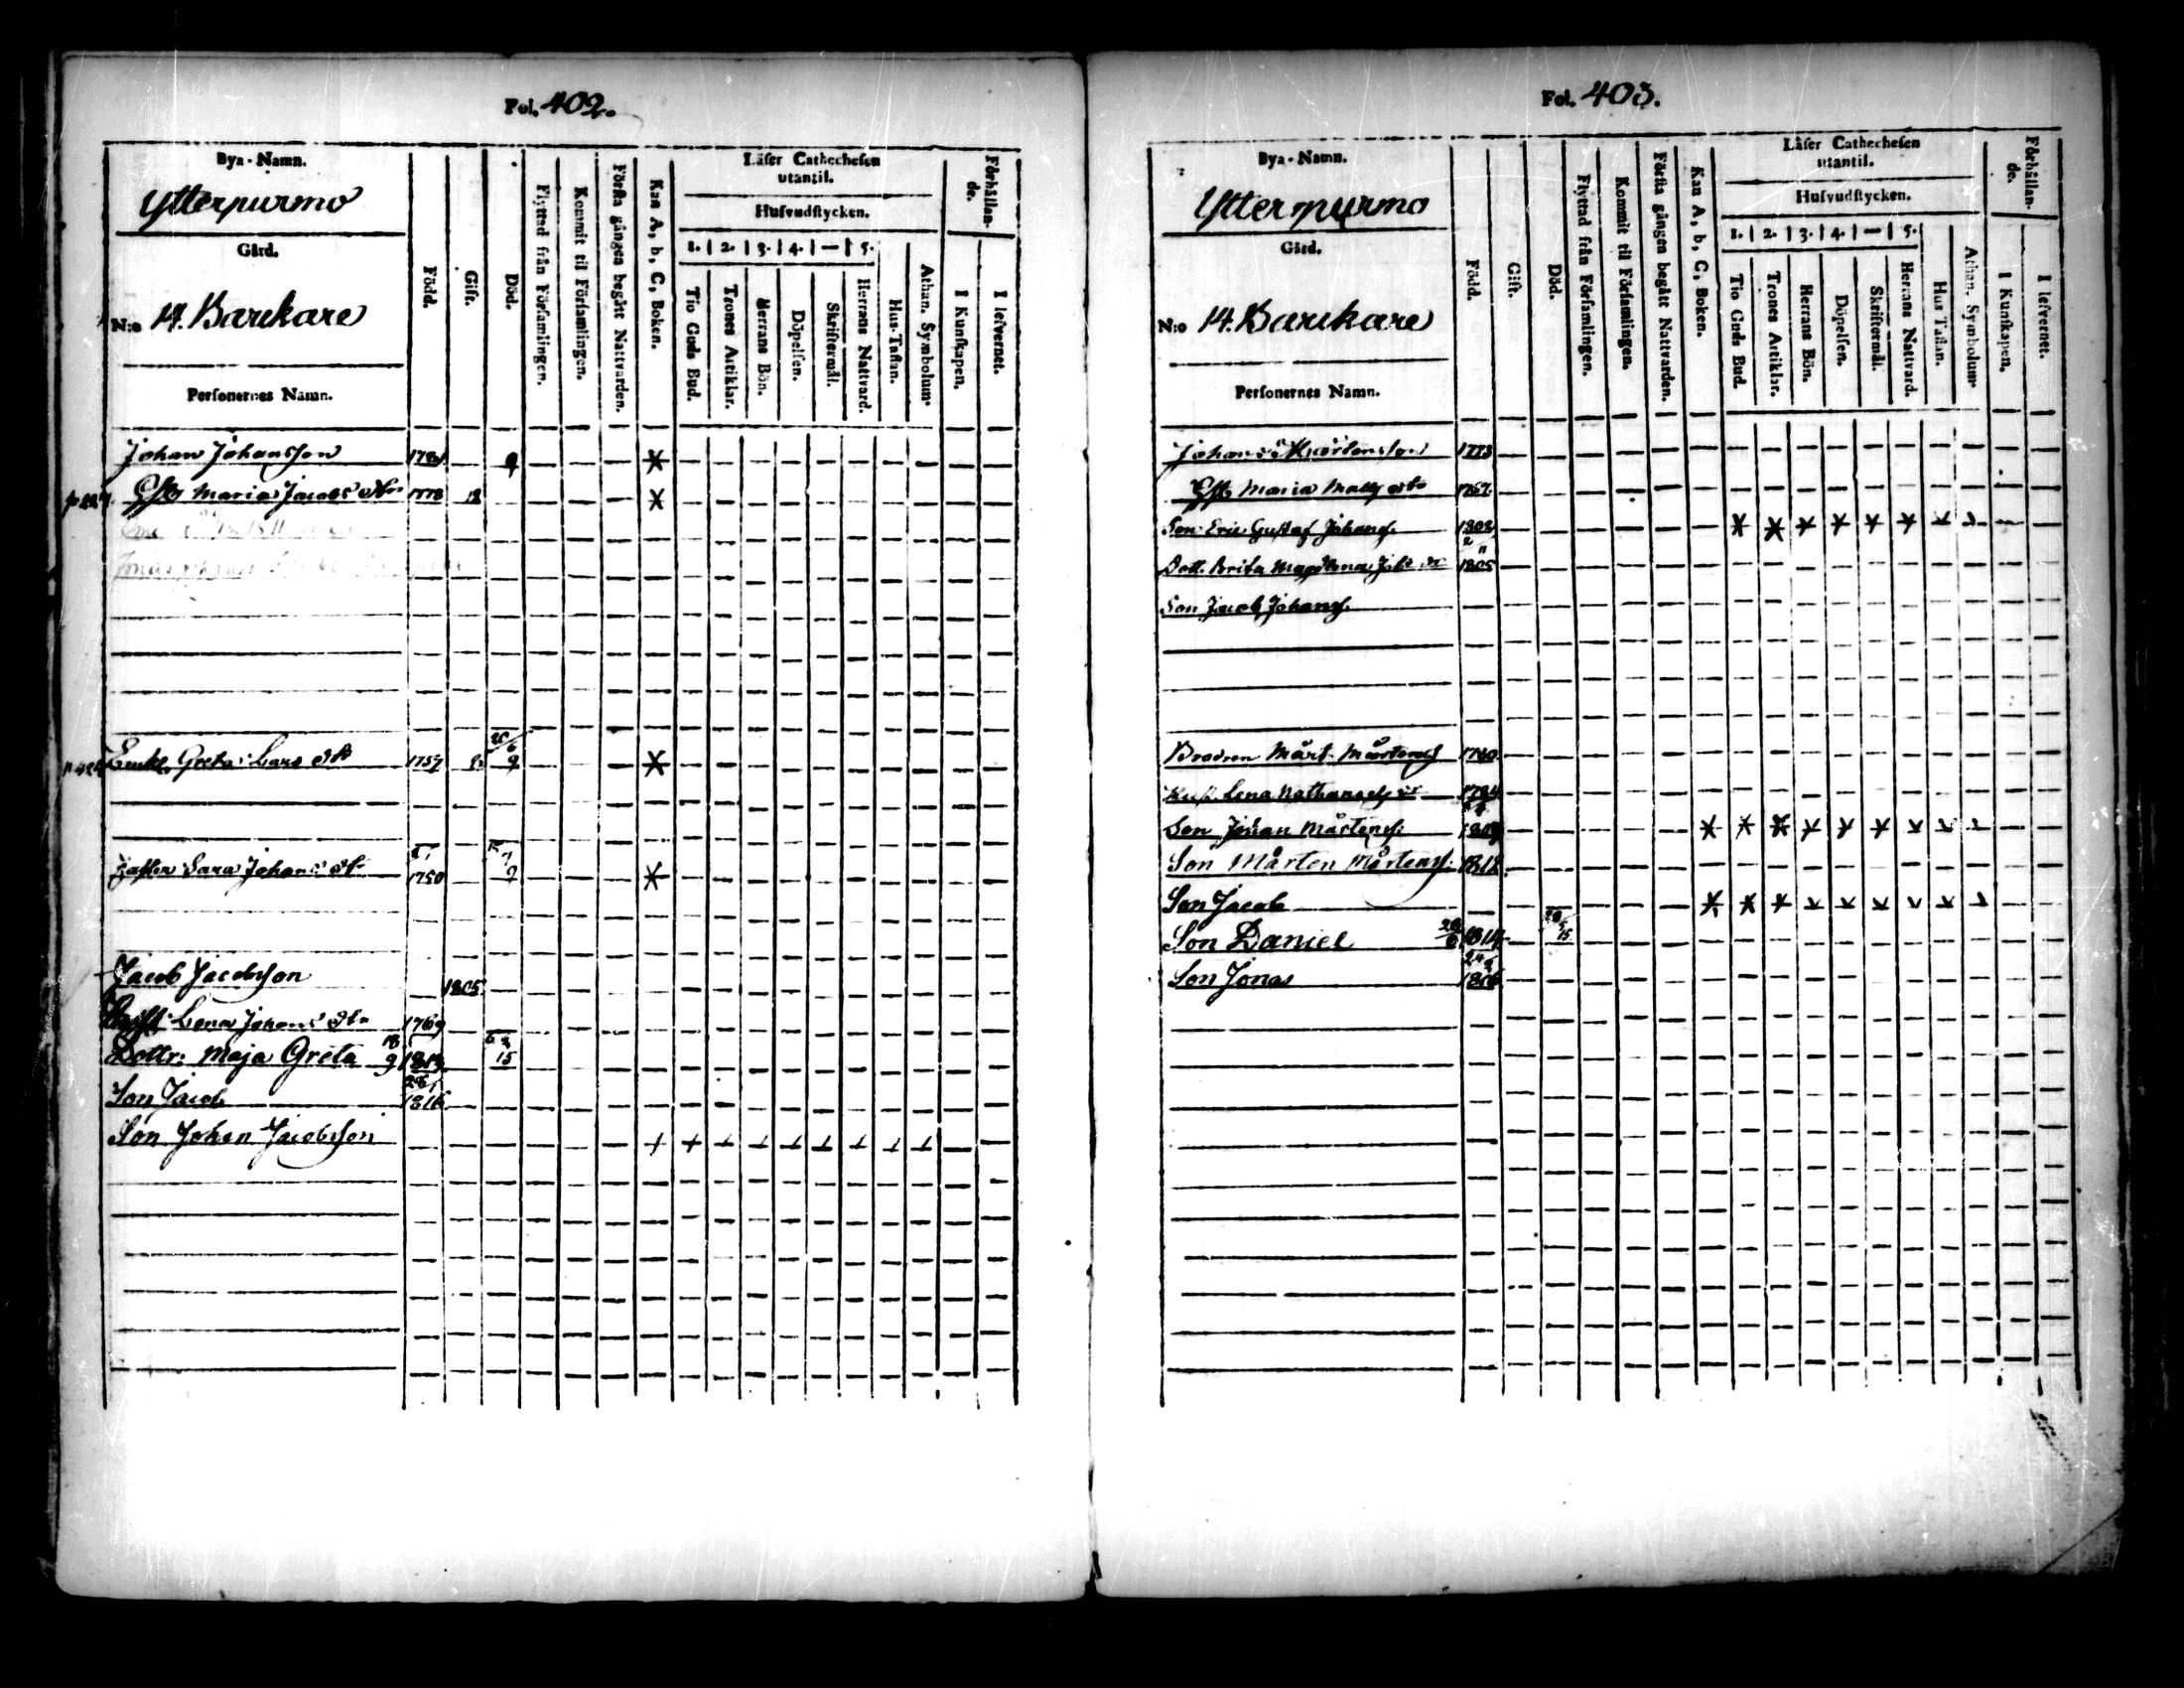 Fol. 402.
Bya-Namn.
Ytterpurmo
Gård.
N:o 14. Barckare
Personernes Namn.
Född.
Gift.
Död.
Flyttad från Församlingen.
Kommit til Församlingen.
Första gången begått Nattvarden.
Kan A, b, C, Boken.
Läser Cathechesen
utantil.
Hufvudstycken.
1. 2. 3. 4. — 5.
Tio Guds Bud.
Trones Artiklar.
Herrans Bön.
Döpelsen.
Skriftermål.
Herrans Nattvard.
Hus-Taflan.
Athan. Symbolum.
Förhållan-
de.
I Kunskapen.
I lefvernet.
Johan Johansson
Maria Jacobs 1778 13
Enka Greta Lars dr 1757
Sara Johans dr 1750
Jacob Jacobsson 1805
Lena Johans dr 1769
Dottr: Maja Greta 18/9 1813 15
Son Jacob 1816
Son Johan Jacobsson
Fol. 403.
Bya-Namn.
Ytterpurmo
Gård.
N:o 14. Barckare
Personernes Namn.
Född.
Gift.
Död.
Flyttad från Församlingen.
Kommit til Församlingen.
Första gången begått Nattvarden.
Kan A, b, C, Boken.
Läser Cathechesen
utantil.
Hufvudstycken.
1. 2. 3. 4. — 5.
Tio Guds Bud.
Trones Artiklar.
Herrans Bön.
Döpelsen.
Skriftermål.
Herrans Nattvard.
Hus Taflan.
Athan. Symbolum.
Förhållan-
de.
I Kunskapen.
I lefvernet.
Johan Mårtensson 1773
Maria Matts dr 1767
Son Eric Gustaf Johanss. 1802
Dott. Brita Magdlena 1805
Son Jacob Johanss.
Brodren Mårt. Mårtenss 1780
Lena Nathanaels dr 1784
Son Johan Mårtenss:
Son Mårten Mårtenss. 1812
Son Jacob
Son Daniel 1814 15
Son Jonas